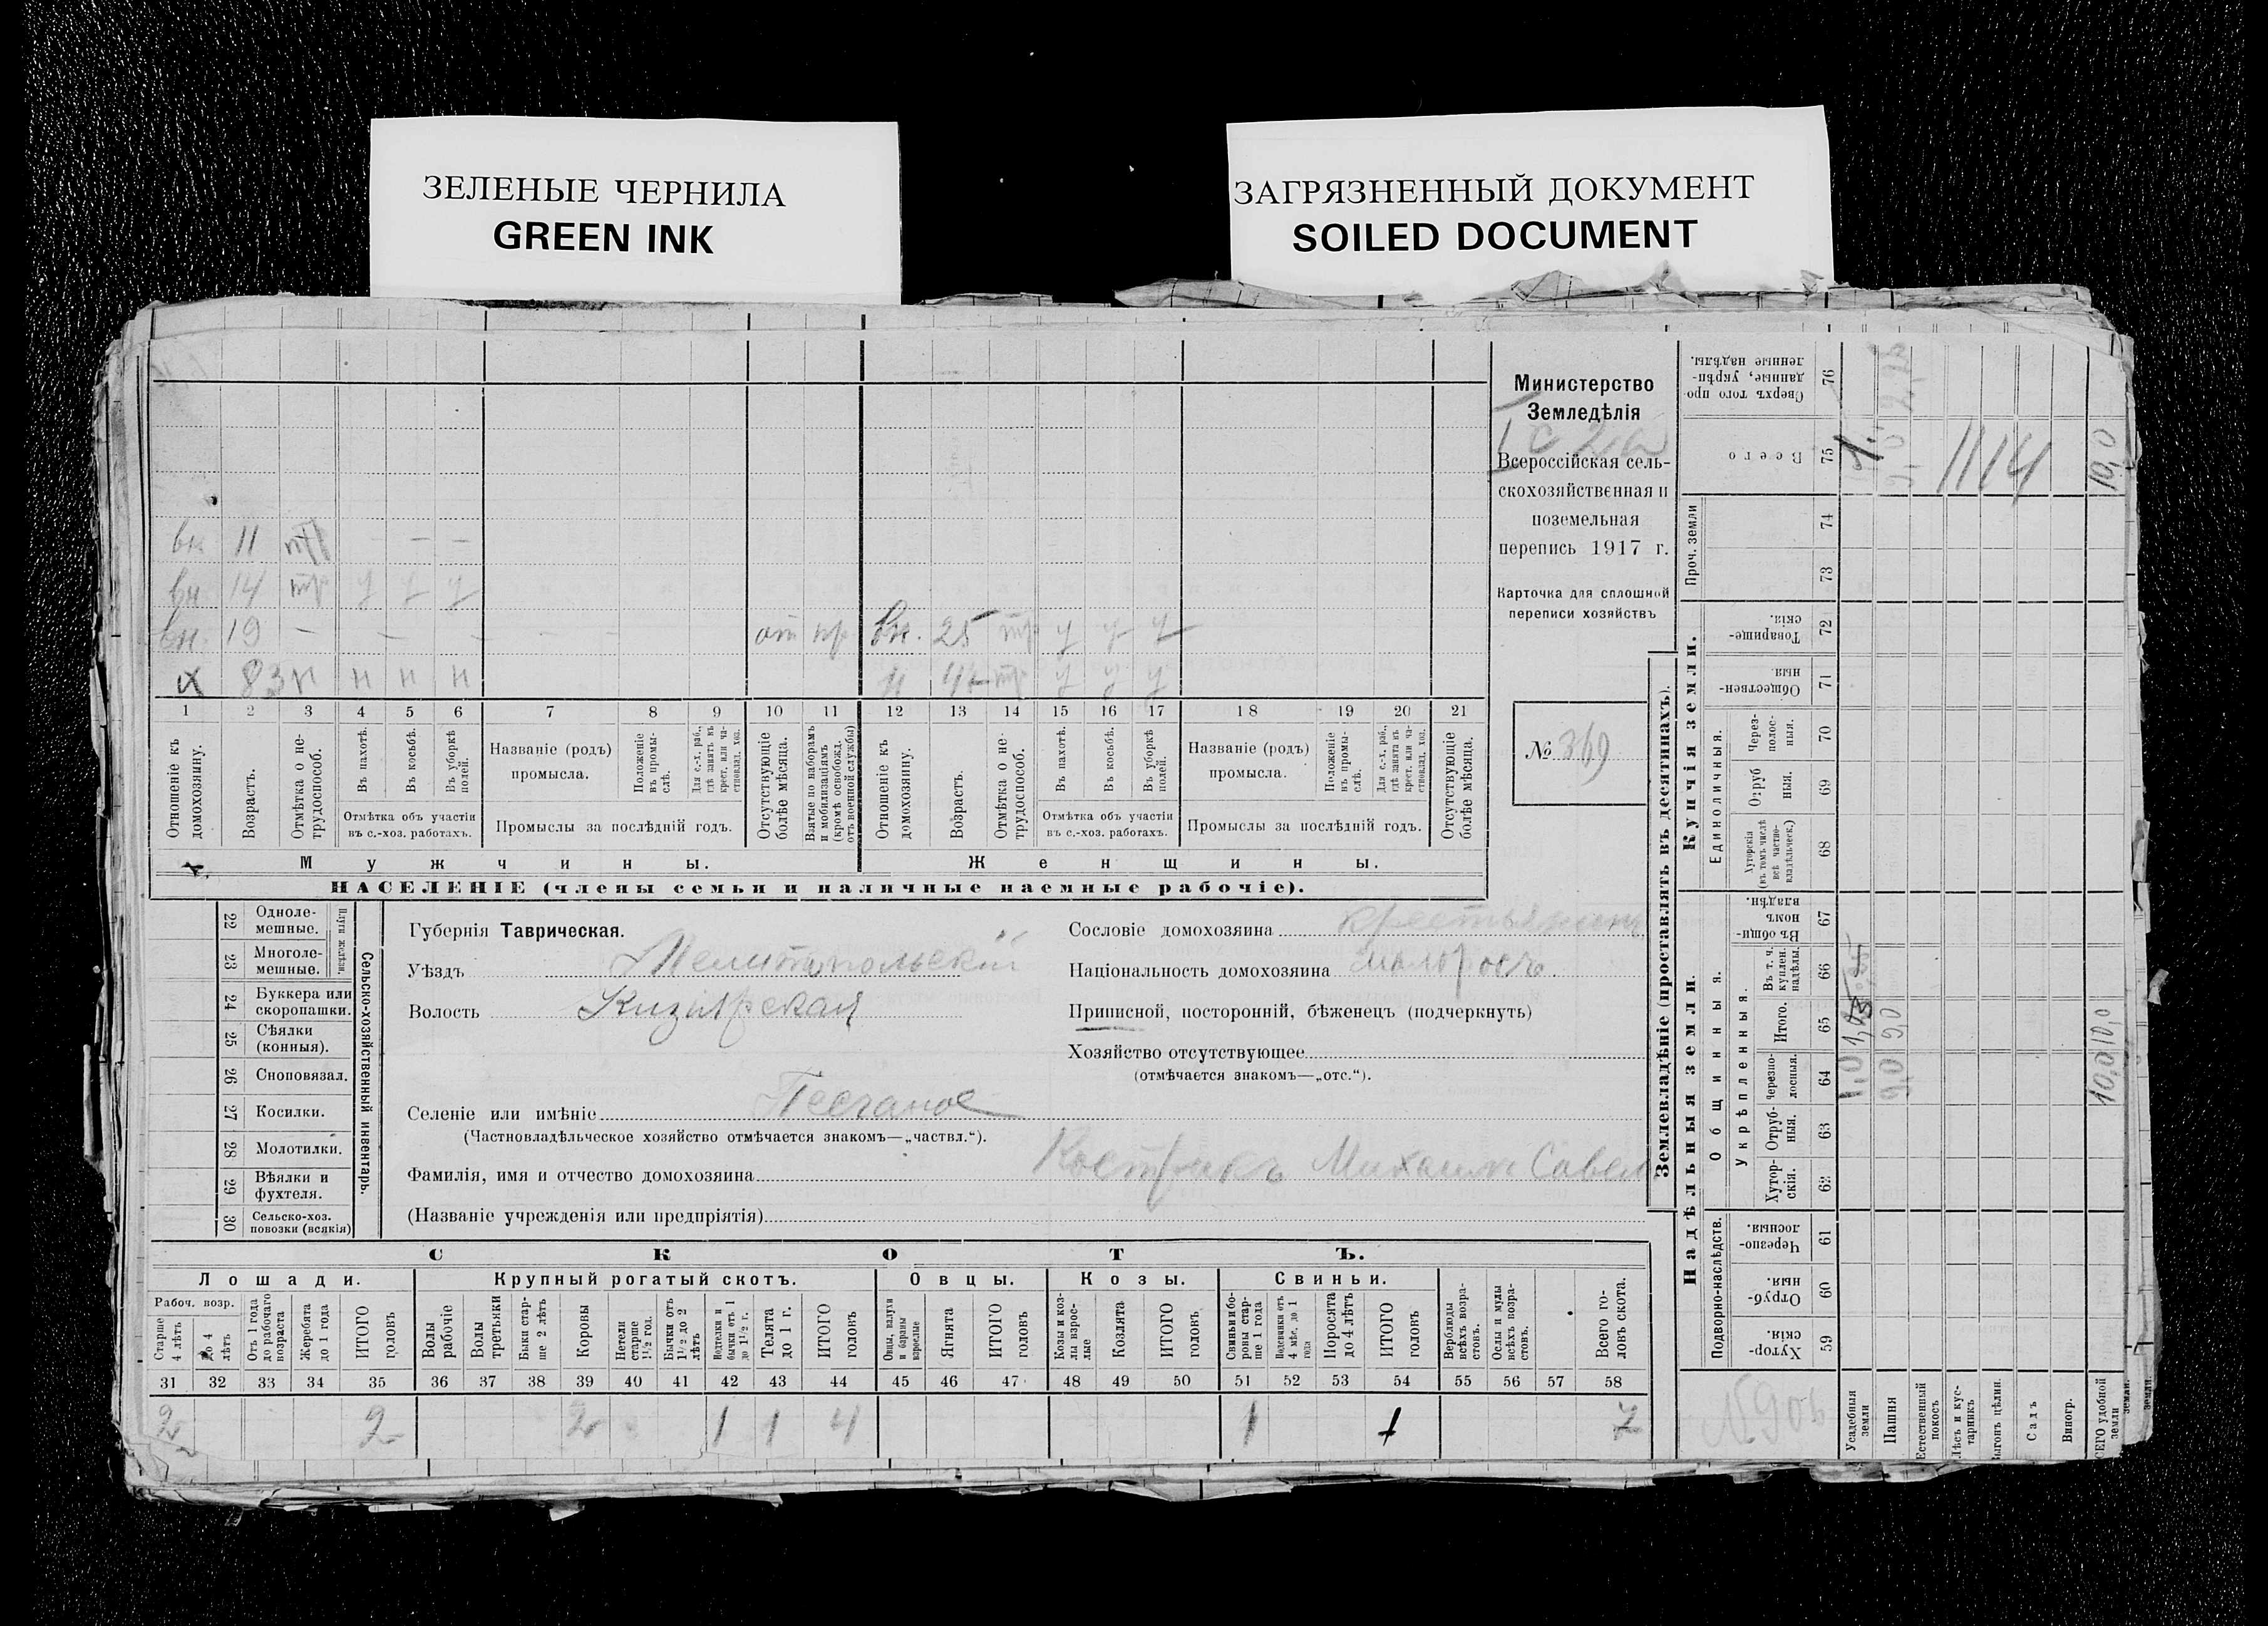 ЗЕЛЕНЫЕ ЧЕРНИЛА
GREEN INK
ЗАГРЯЗНЕННЫЙ ДОКУМЕНТ
SOILED DOCUMENT
вн 11 — —
вн 14 тр у у у
вн. 19 — — — — — — от пр вн. 25 тр у у у
х 83 н н н н н тр у у у
1 2 3 4 5 6 7 8 9 10 11 12 13 14 15 16 17 18 19 20 21
Отношеніе къ домохозяину.
Возрастъ.
Отмѣтка о нетрудоспособ.
Въ пахотѣ.
Въ косьбѣ.
Въ уборкѣ полей.
Отмѣтка объ участіи въ с.-хоз. работахъ.
Названіе (родъ) промысла.
Положеніе въ промыслѣ.
Для с.-х. раб., гдѣ занятъ въ крест. или частновлад. хоз.
Промыслы за послѣдній годъ.
Отсутствующіе болѣе мѣсяца.
Взятые по наборамъ и мобилизаціямъ (кромѣ освобожд. отъ военной службы)
Отношеніе къ домохозяину.
Возрастъ.
Отмѣтка о нетрудоспособ.
Въ пахотѣ.
Въ косьбѣ.
Въ уборкѣ полей.
Отмѣтка объ участіи въ с.-хоз. работахъ.
Названіе (родъ) промысла.
Положеніе въ промыслѣ.
Для с.-х. раб., гдѣ занята въ крест. или частновлад. хоз.
Промыслы за послѣдній годъ.
Отсутствующіе болѣе мѣсяца.
Мужчины.
Женщины.
НАСЕЛЕНІЕ (члены семьи и наличные наемные рабочіе).
Министерство
Земледѣлія
Всероссійская сель-
скохозяйственная и
поземельная
перепись 1917 г.
Карточка для сплошной
переписи хозяйствъ
№ 369
22 Одноле-
мешные.
23 Многоле-
мешные.
Плуги желѣзн.
24 Буккера или
скоропашки.
25 Сѣялки
(конныя).
26 Сноповязал.
27 Косилки.
28 Молотилки.
29 Вѣялки и
фухтеля.
30 Сельско-хоз.
повозки (всякія)
Сельско-хозяйственный инвентарь.
Губернія Таврическая.
Уѣздъ Мелитопольскій
Волость Кизіярская
Селеніе или имѣніе Песчаное
(Частновладѣльческое хозяйство отмѣчается знакомъ—„частвл.“).
Фамилія, имя и отчество домохозяина Костракъ Михаилъ Савел
(Названіе учрежденія или предпріятія)
Сословіе домохозяина крестьянинъ
Національность домохозяина малороссъ.
Приписной, посторонній, бѣженецъ (подчеркнуть)
Хозяйство отсутствующее
(отмѣчается знакомъ—„отс.“).
СКОТЪ.
Лошади. Крупный рогатый скотъ. Овцы. Козы. Свиньи.
Рабоч. возр.
Старше 4 лѣтъ
До 4 лѣтъ
Отъ 1 года до рабочаго возраста
Жеребята до 1 года
ИТОГО головъ
Волы рабочіе
Волы третьяки
Быки старше 2 лѣтъ
Коровы
Нетели старше 1½ год.
Бычки отъ 1½ до 2 лѣтъ
Подтелки и бычки отъ 1 до 1½ г.
Телята до 1 г.
ИТОГО головъ
Овцы, валухи и бараны взрослые
Ягнята
ИТОГО головъ
Козы и козлы взрослые
Козлята
ИТОГО головъ
Свиньи и боровы старше 1 года
Подсвинки от 4 мѣс. до 1 года
Поросята до 4 лѣтъ
ИТОГО головъ
Верблюды всѣхъ возрастовъ.
Ослы и мулы всѣхъ возрастовъ.
Всего головъ скота.
31 32 33 34 35 36 37 38 39 40 41 42 43 44 45 46 47 48 49 50 51 52 53 54 55 56 57 58
2 2 2 1 1 4 1 1 7
Землевладѣніе (проставлять въ десятинахъ).
Купчія земли.
Надѣльныя земли.
Сверхъ того проданные, укрѣпленные надѣлы. 76
Всего 75
Проч. земли 74 73
Товарищескія. 72
Общественныя. 71
Единоличныя.
Черезполосныя. 70
Отрубныя. 69
Хуторскія (въ томъ числѣ всѣ частновладѣльческ.) 68
Общинныя.
Въ общинномъ владѣн. 67
Укрѣпленныя.
Въ т. ч. куплен. надѣлы. 66
Итого. 65
Черезполосныя. 64
Отрубныя. 63
Хуторскія. 62
Подворно-наслѣдств.
Черезполосныя. 61
Отрубныя. 60
Хуторскія. 59
Усадебныя земли
Пашня
Естественный покосъ
Лѣсъ и кустарникъ
Выгонъ цѣлин.
Садъ
Виногр.
ВСЕГО удобной земли
1,0
9,0 9,0
10,0 10,0
10,0